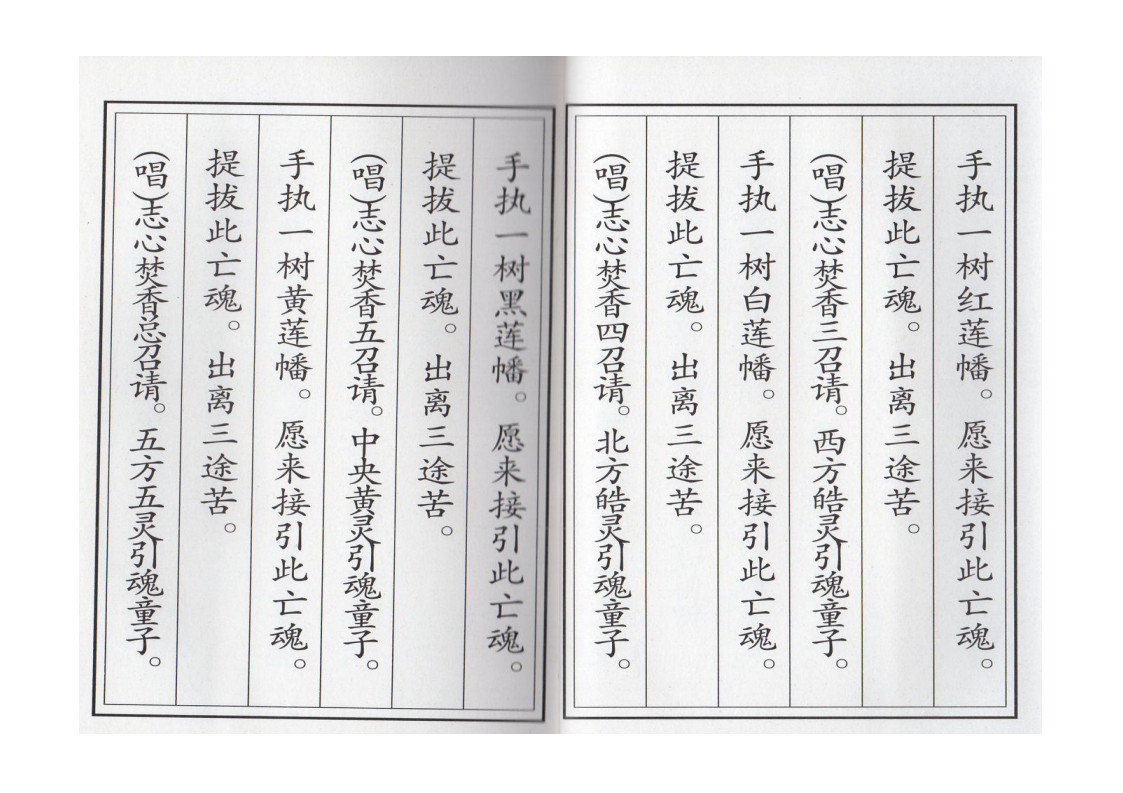 手执一树红莲幡。愿来接引此亡魂。
提拔此亡魂。出离三途苦。
(唱)志心焚香三召请。西方皓灵引魂童子。
手执一树白莲幡。愿来接引此亡魂。
提拔此亡魂。出离三途苦。
(唱)志心焚香四召请。北方皓灵引魂童子。
手执一树黑莲幡。愿来接引此亡魂。
提拔此亡魂。出离三途苦。
(唱)志心焚香五召请。中央黄灵引魂童子。
手执一树黄莲幡。愿来接引此亡魂。
提拔此亡魂。出离三途苦。
(唱)志心焚香总召请。五方五灵引魂童子。